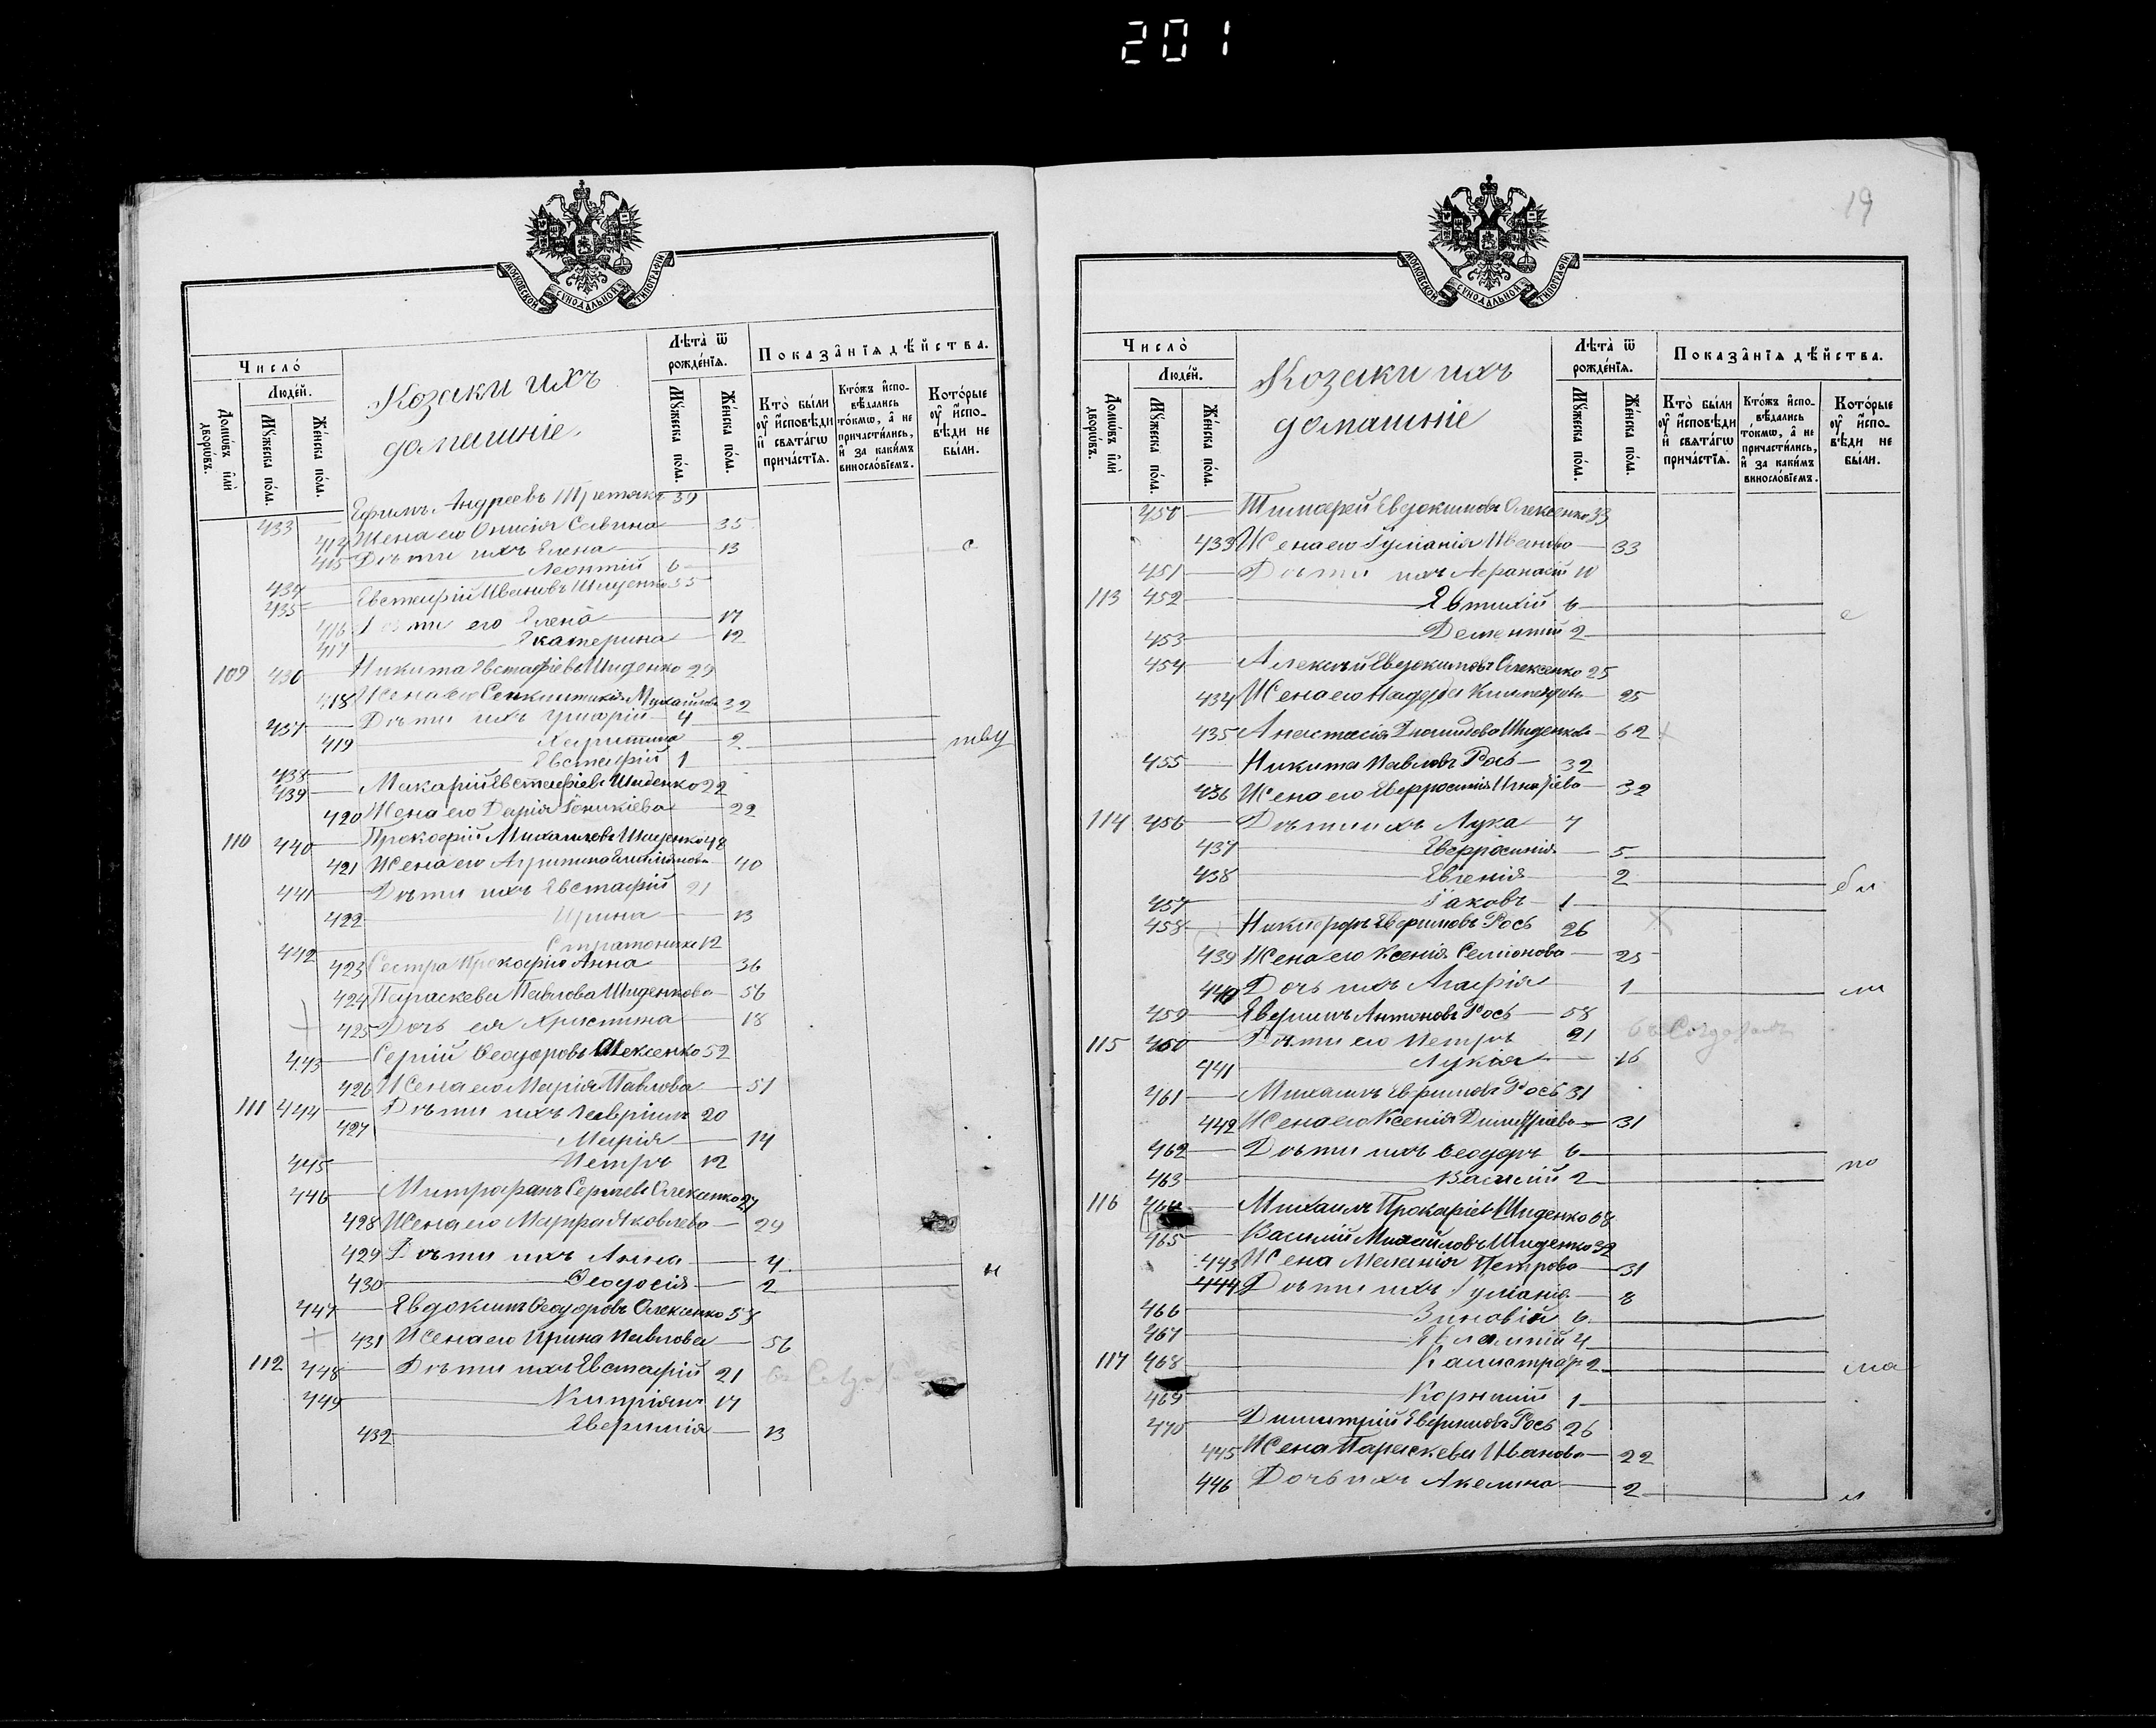 201
МОСКОВСКОЙ СУНОДАЛЬНОЙ ТИПОГРАФІИ
Число̀
Людéй.
Домѡ́въ и҆лѝ дворѡ́въ.
Мꙋ́жеска по́ла.
Же́нска по́ла.
Козаки ихъ
домашніе.
Лѣ́та ѿ рождéнїѧ.
Мꙋ́жеска по́ла.
Же́нска по́ла.
Показа̑нїѧ дѣ́йства.
Кто̀ бы́ли ᲂу҆ и҆́сповѣди и҆ свѧта́гѡ прича́стїѧ.
Кто́жъ и҆спо-вѣ́дались то́кмѡ, а҆ не причасти́лись, и҆ за каки́мъ винословїемъ.
Кото́рые ᲂу҆ и҆спо-вѣди не бы́ли.
433 Ефимъ Андреевъ 39
414 Жена его Онисія Савина 35
415 Дѣти ихъ Елена 13 с
434 Леонтій 6
435 Евстафій Ивановъ Шиденко 55
416 Дѣти его Елена 17
417 Екатерина 12
109 436 Никита Евстафіевъ Шиденко 29
418 Жена его Михайлова 32
437 Дѣти ихъ Григорій 4
419 Харитина 2 тву
438 Евстафій 1
439 Макарій Евстафіевъ Шиденко 22
420 Жена его Дарія 22
110 440 Прокофій Михайловъ Шиденко 48
421 Жена его Агрипина Емиліанова 40
441 Дѣти ихъ Евстафій 21
422 Ирина 13
442 Стратоникъ 12
423 Сестра Прокофія Анна 36
424 Параскева Павлова Шиденкова 56
425 Дочь ея Христина 18
443 Сергій Ѳеодоровъ Олексенко 52
426 Жена его Марія Павлова 51
111 444 Дѣти ихъ Гавріилъ 20
427 Марія 14
445 Петръ 12
446 Митрофанъ Сергіевъ Олексенко 27
428 Жена его Марфа Яковлева 24
429 Дѣти ихъ Анна 4
430 Ѳеодосія 2 н
447 Евдокимъ Ѳеодоровъ Олексенко 55
431 Жена его Ирина Павлова 56
112 448 Дѣти ихъ Евстафій 21
449 Кипріянъ 17
432 Евфимія 13
19
МОСКОВСКОЙ СУНОДАЛЬНОЙ ТИПОГРАФІИ
Число̀
Людéй.
Домѡ́въ и҆лѝ дворѡ́въ.
Мꙋ́жеска по́ла.
Же́нска по́ла.
Козаки ихъ
домашніе
Лѣ́та ѿ рождéнїѧ.
Мꙋ́жеска по́ла.
Же́нска по́ла.
Показа̑нїѧ дѣ́йства.
Кто̀ бы́ли ᲂу҆ и҆́сповѣди и҆ свѧта́гѡ прича́стїѧ.
Кто́жъ и҆спо-вѣ́дались то́кмѡ, а҆ не причасти́лись, и҆ за каки́мъ винословїемъ.
Кото́рые ᲂу҆ и҆спо-вѣди не бы́ли.
450 Тимофей Евдокимовъ Олексенко 33
433 Жена его Іуліанія Иванова 33
451 Дѣти ихъ Афанасій 10
113 452 Евтихій 6 е
453 Дементій 2
454 Алексѣй Евдокимовъ Олексенко 25
434 Жена его 25
435 Анастасія Шиденкова 62
455 Никита Павловъ Рось 32
436 Жена его Евфросинія Игнатіева 32
114 456 Дѣти ихъ Лука 7
437 Евфросинія 5
438 Евгенія 2
457 Іаковъ 1
458 Никифоръ Евфимовъ Рось 26
439 Жена его Ксенія Семіонова 25
440 Дочь ихъ Агафія 1 ли
459 Евфимъ Антоновъ Рось 58
115 460 Дѣти его Петръ 21
441 Лукія 16
461 Михаилъ Евфимовъ Рось 31
442 Жена его Ксенія Димитріева 31
462 Дѣти ихъ Ѳеодоръ 6 по
463 Василій 2
116 464 Михаилъ Прокофіевъ Шиденко 68
465 Василій Михайловъ Шиденко 32
443 Жена Меланія Петрова 31
444 Дѣти ихъ Іуліанія 8
466 Зиновій 6
467 Евлампій 4
117 468 Калистратъ 2 ма
469 Корнилій 1
470 Димитрій Евфимовъ Рось 26
445 Жена Параскева Иванова 22
446 Дочь ихъ Акелина 2 л